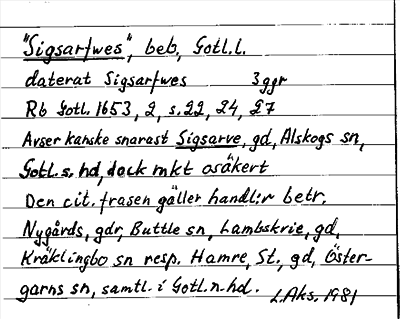 "Sigsarfwes", beb, Gotl.l.
daterat Sigsarfwes 3ggr
Rb Gotl. 1653, 2, s.22, 24, 27
Avser kanske snarast Sigsarve, gd, Alskogs sn,
Gotl.s. hd, dock mkt osäkert
Den cit. frasen gäller handl:r betr.
Nygårds, gdr, Buttle sn, Lambskrie, gd,
Kräklingbo sn resp. Hamre, St., gd, Öster-
garns sn, samtl. i Gotl.n.hd.
L.Aks. 1981